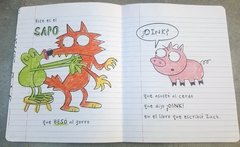 Este es el
SAPO
que BESÓ al zorro
¡OINK!
que asustó al cerdo
que dijo ¡OINK!
en el libro que escribió Zack.